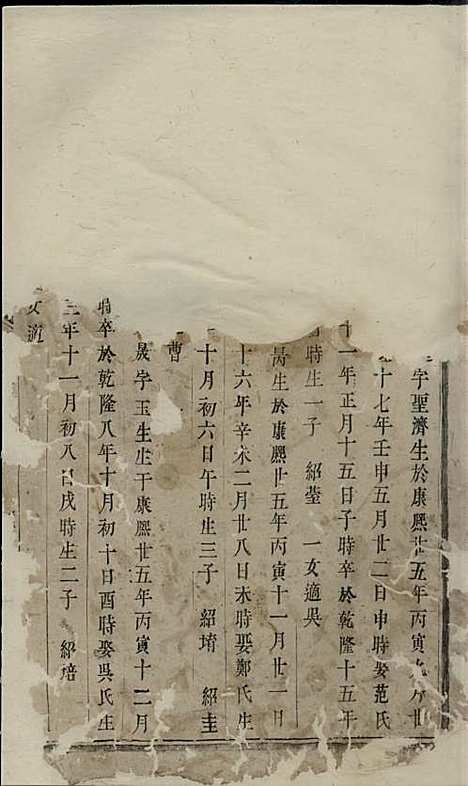 字聖濟生於康熙廿五年丙寅九月廿
十七年壬申五月廿二日申時娶范氏
十一年正月十五日子時卒於乾隆十五年
時生一子　紹瑩　一女適吳
昺生於康熙廿五年丙寅十一月廿一日
十六年辛未二月廿八日未時娶鄭氏生
十月初六日午時生三子　紹堉　紹圭
曹
晟字玉生生于康熙廿五年丙寅十二月
時卒於乾隆八年十月初十日酉時娶吳氏生
三年十一月初八日戌時生二子　紹培
女適